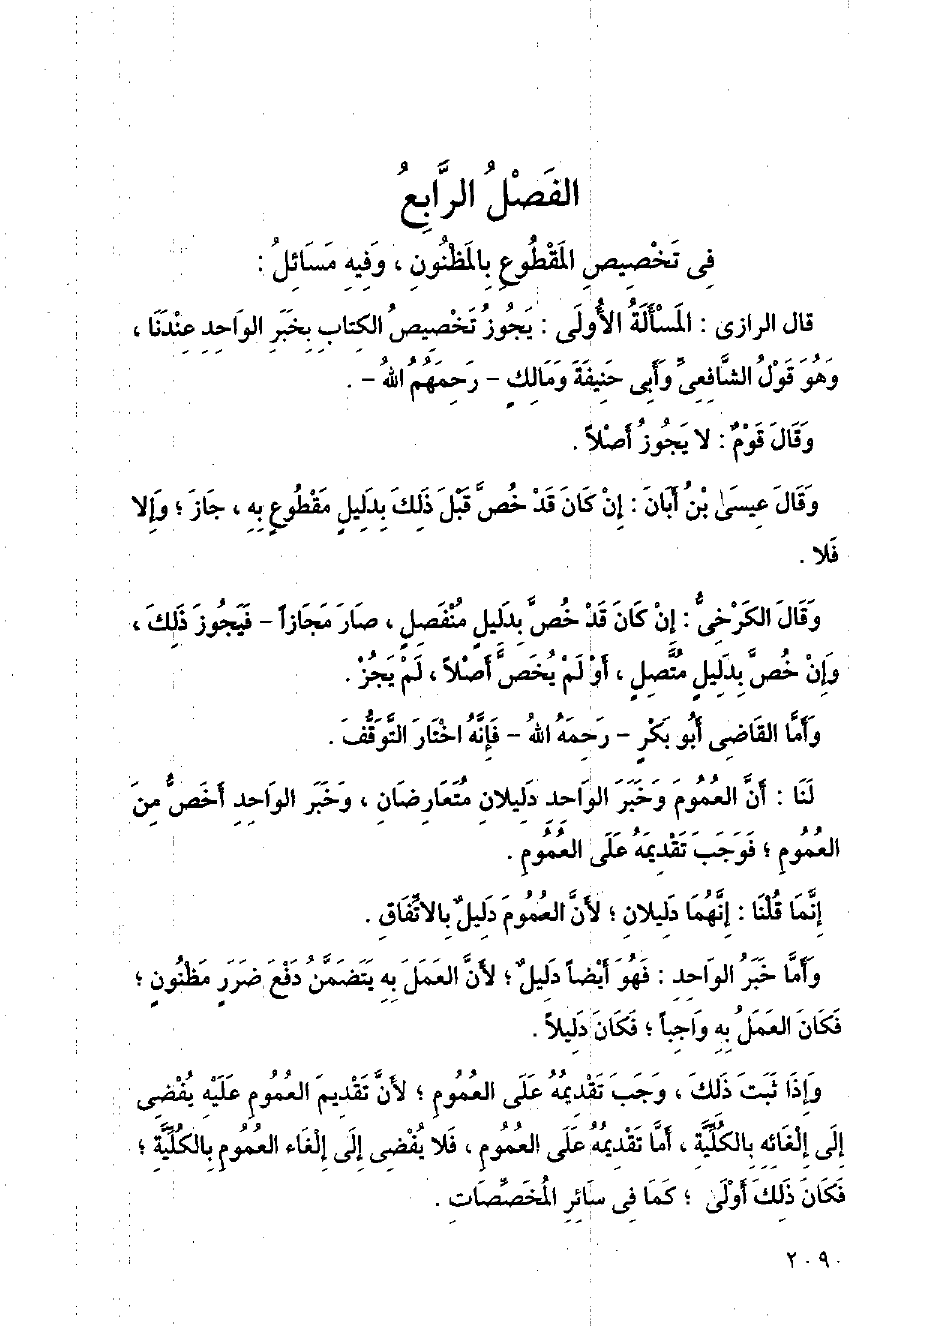 الفَصْلُ الرَّابِعُ
فِى تَخْصِيصِ المَقْطُوعِ بِالمَظْنُونِ ، وَفِيهِ مَسَائِلُ :
قال الرازى : المَسْأَلَةُ الأُولَى : يَجُوزُ تَخْصِيصُ الكِتَابِ بِخَبَرِ الوَاحِدِ عِنْدَنَا ،
وَهُوَ قَوْلُ الشَّافِعِىِّ وَأَبِى حَنِيفَةَ وَمَالِكٍ – رَحِمَهُمُ اللهُ – .
وَقَالَ قَوْمٌ : لا يَجُوزُ أَصْلاً .
وَقَالَ عِيسَى بْنُ أَبَانَ : إِنْ كَانَ قَدْ خُصَّ قَبْلَ ذَلِكَ بِدَلِيلٍ مَقْطُوعٍ بِهِ ، جَازَ ؛ وَإِلا
فَلا .
وَقَالَ الكَرْخِىُّ : إِنْ كَانَ قَدْ خُصَّ بِدَلِيلٍ مُنْفَصِلٍ ، صَارَ مَجَازاً – فَيَجُوزَ ذَلِكَ ،
وَإِنْ خُصَّ بِدَلِيلٍ مُتَّصِلٍ ، أَوْ لَمْ يُخَصَّ أَصْلاً ، لَمْ يَجُزْ .
وَأَمَّا القَاضِى أَبُو بَكْرٍ – رَحِمَهُ اللهُ – فَإِنَّهُ اخْتَارَ التَّوَقُّفَ .
لَنَا : أَنَّ العُمُومَ وَخَبَرَ الوَاحِدِ دَلِيلانِ مُتَعَارِضَانِ ، وَخَبَرَ الوَاحِدِ أَخَصُّ مِنَ
العُمُومِ ؛ فَوَجَبَ تَقْدِيمُهُ عَلَى العُمُومِ .
إِنَّمَا قُلْنَا : إِنَّهُمَا دَلِيلانِ ؛ لأَنَّ العُمُومَ دَلِيلٌ بِالاتِّفَاقِ .
وَأَمَّا خَبَرُ الوَاحِدِ : فَهُوَ أَيْضاً دَلِيلٌ ؛ لأَنَّ العَمَلَ بِهِ يَتَضَمَّنُ دَفْعَ ضَرَرٍ مَظْنُونٍ ؛
فَكَانَ العَمَلُ بِهِ وَاجِباً ؛ فَكَانَ دَلِيلاً .
وَإِذَا ثَبَتَ ذَلِكَ ، وَجَبَ تَقْدِيمُهُ عَلَى العُمُومِ ؛ لأَنَّ تَقْدِيمَ العُمُومِ عَلَيْهِ يُفْضِى
إِلَى إِلْغَائِهِ بِالكُلِّيَّةِ ، أَمَّا تَقْدِيمُهُ عَلَى العُمُومِ ، فَلا يُفْضِى إِلَى إِلْغَاءِ العُمُومِ بِالكُلِّيَّةِ ؛
فَكَانَ ذَلِكَ أَوْلَى ؛ كَمَا فِى سَائِرِ المُخَصِّصَاتِ .
٢٠٩٠